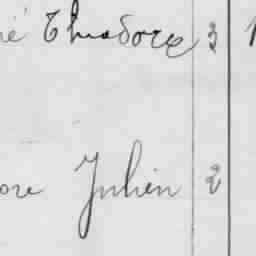 né Théodore 3
ore Julien 2